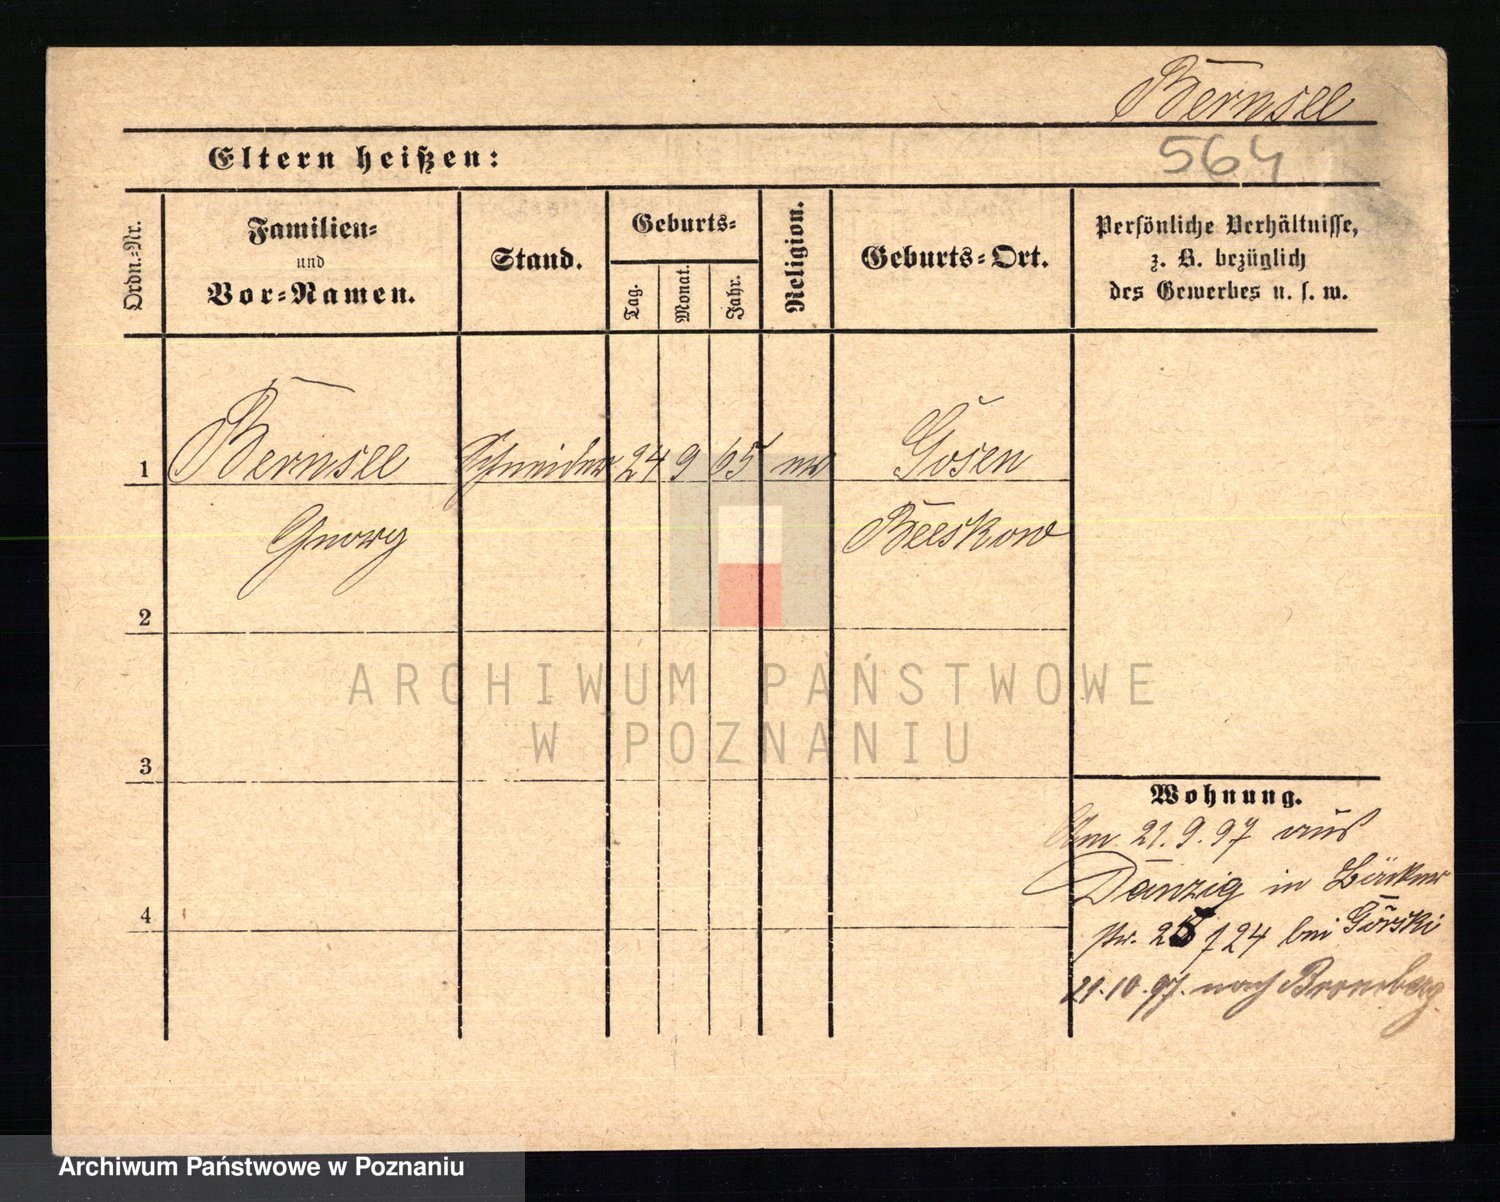 Bernsee
564
Eltern heißen:
Ordn.-Nr.
Familien-
und
Vor-Namen.
Stand.
Geburts-
Tag.
Monat.
Jahr.
Religion.
Geburts-Ort.
Persönliche Verhältnisse,
z. B. bezüglich
des Gewerbes u. s. w.
1 Bernsee Schneider 24 9 65 ev Gosen
Georg Beeskow
2
3
4
Wohnung.
Am 21.9.97 aus
Danzig in Bäcker
str. 24 bei Gorski
21.10.97. nach Bromberg
ARCHIWUM PAŃSTWOWE
W POZNANIU
Archiwum Państwowe w Poznaniu